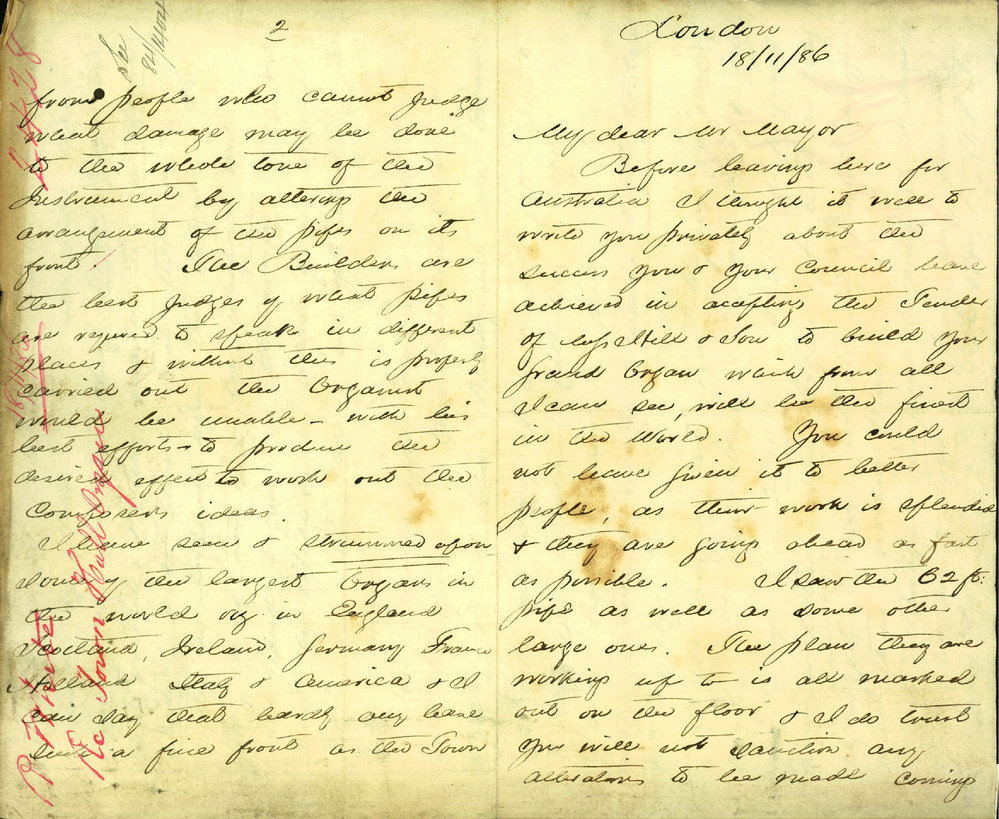 London
18/11/86
My dear Mr Mayor
Before leaving here for
Australia I thought it well to
write you privately about the
success you & your Council have
achieved in accepting the Tender
of Messrs Hill & Son to build your
Grand Organ which from all
I can see, will be the finest
in the World. You could
not have given it to better
people, as their work is splendid
& they are going ahead as fast
as possible. I saw the 62 ft:
pipe as well as some other
large ones. The plan they are
working up to is all marked
out on the floor & I do trust
you will not sanction any
alterations to be made coming
2
from people who cannot judge
what damage may be done
to the whole tone of the
Instrument by altering the
arrangement of the pipes on its
front. The Builders are
the best judges of what pipes
are required to speak in different
places & without this is properly
carried out the Organist
would be unable - with his
best efforts - to produce the
desired effect to work out the
Composers ideas.
I have seen & strummed upon
some of the largest Organs in
the world viz in England
Scotland, Ireland, Germany France
Holland Italy & America & I
can say that hardly any have
such a fine front as the Town
See
84/404
2428
Re Town Hall Organ